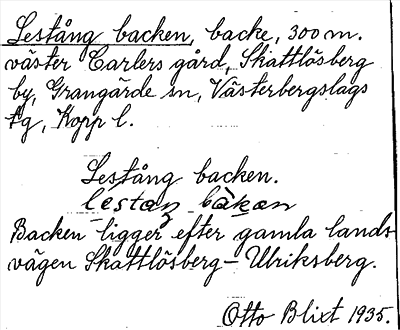 Lestång backen, backe, 300 m.
väster Carlers gård, Skattlösberg
by, Grangärde sn, Västerbergslags
tg, Kopp l.
Lestång backen.
lestaŋ bàkan
Backen ligger efter gamla lands-
vägen Skattlösberg – Ulriksberg.
Otto Blixt 1935.